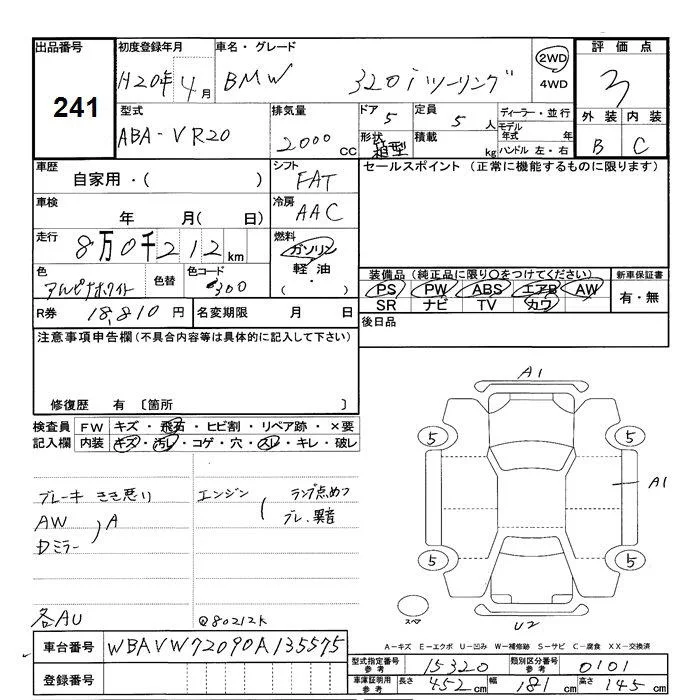 出品番号 初度登録年月 車名・グレード 評価点
241 H20年 4月 BMW 320iツーリング 2WD 4WD 3
型式 排気量 ドア 定員 ディーラー・並行 外装 内装
ABA-VR20 2000 CC 5 5人 モデル年式 年 B C
形状 箱型 積載 kg ハンドル 左・右
車歴 シフト セールスポイント (正常に機能するものに限ります)
自家用・( ) FAT
車検 冷房
年 月( 日) AAC
走行 燃料
8万0千212km ガソリン
軽油
( ・ )
色 色替 色コード 装備品(純正品に限り○をつけてください) 新車保証書
アルピナホワイト 300 PS PW ABS エアB AW 有・無
SR ナビ TV カワ
R券 18,810円 名変期限 月 日 後日品
注意事項申告欄(不具合内容等は具体的に記入して下さい)
修復歴 有 〔箇所 〕
検査員 FW キズ・飛石・ヒビ割・リペア跡・×要
記入欄 内装 キズ・汚レ・コゲ・穴・スレ・キレ・破レ
ブレーキ きき悪い エンジン ランプ点めつ
AW A ブレ、異音
Dミラー
各AU Q80212K
A1
5 5
A1
5 5
スペア
U2
A-キズ E-エクボ U-凹み W-補修跡 S-サビ C-腐食 XX-交換済
車台番号 WBAVW72090A135575
登録番号
型式指定番号 参考 15320 類別区分番号 参考 0101
車庫証明用 参考 長さ 452cm 幅 181cm 高さ 145cm